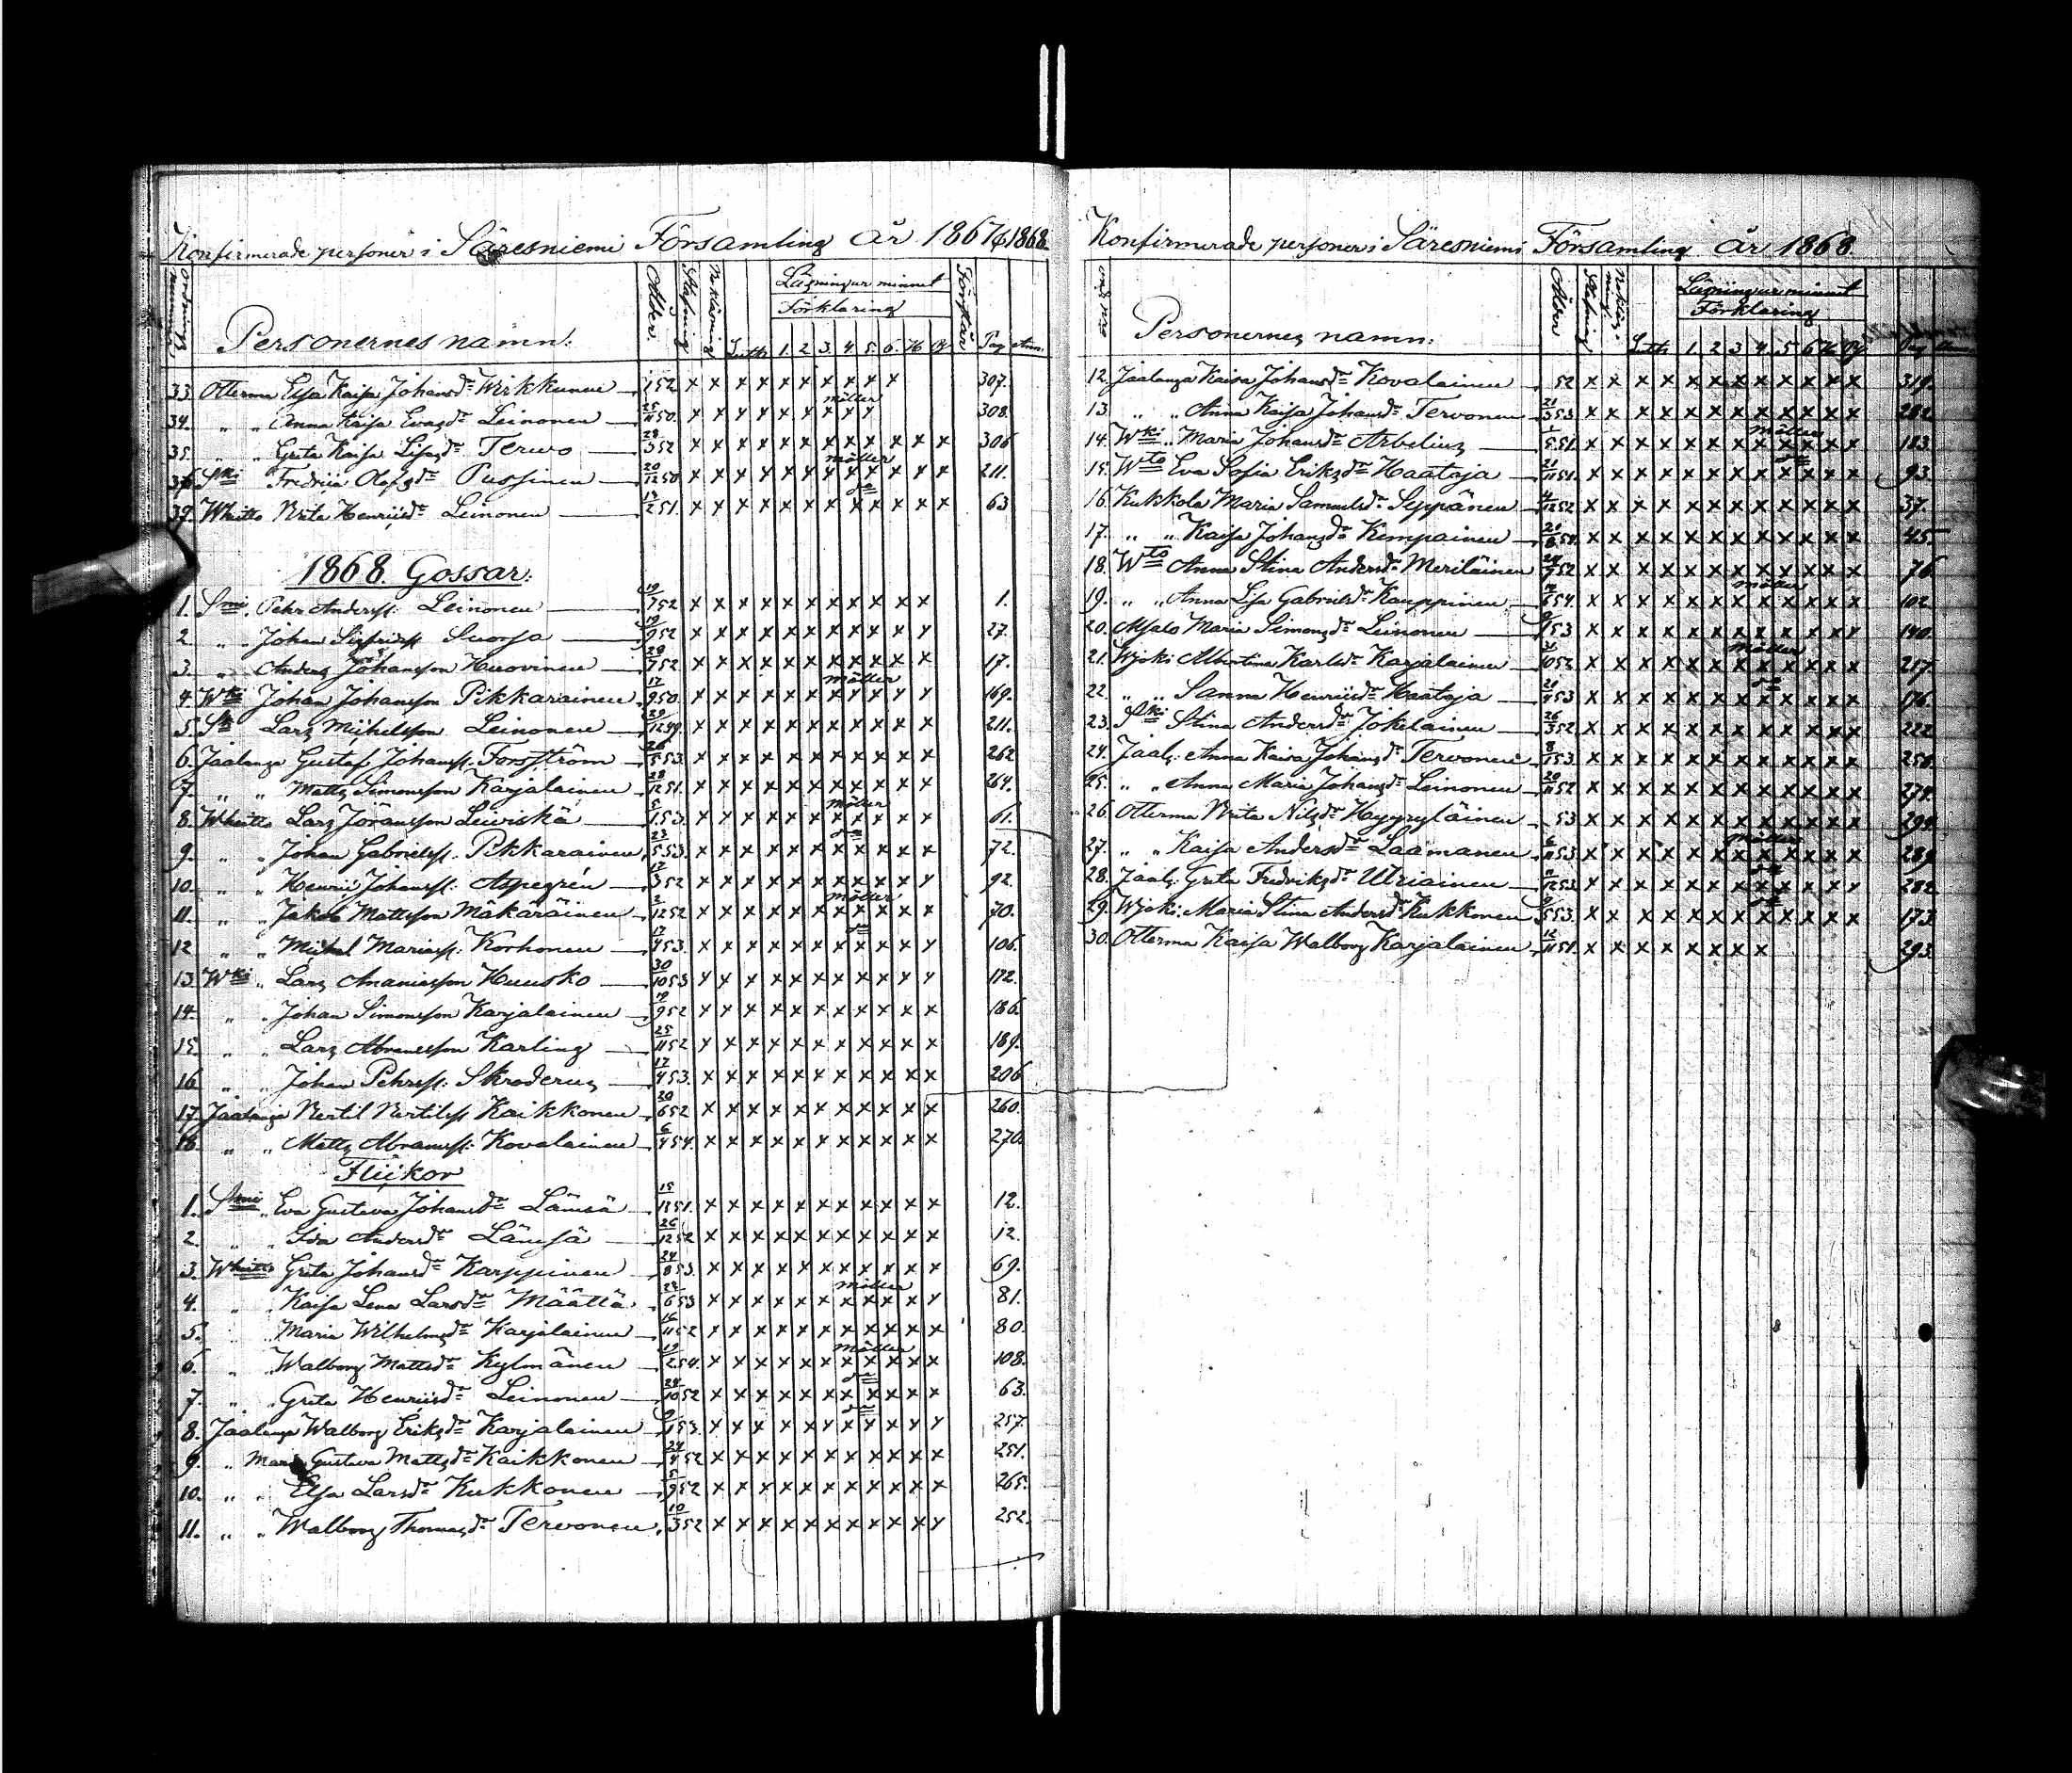 Konfirmerade personer i Säresniemi Församling år 1867 & 1868.
Ålder. Stafning Läsning ur minnet
Förklaring
Personernes namn. Luth. 1. 2. 3. 4. 5. 6. H Pag. Anm.
33. Otterma Elsa Kaisa Johansdr Wirkkunen 52 x x x x x x x x x x 307.
möller
34. " " Anna Kaisa Evasdr Leinonen 25/11 50. x x x x x x x x x 308.
35. " " Greta Kaisa Lisasdr Terwo 28/3 52 x x x x x x x x x x x x 306
möller
36. Ski Fredrica Olofsdr Pussinen 20/12 50 x x x x x x x x x x x x 211.
do
37. Whitto Brita Henricsdr Leinonen 2 51. x x x x x x x x x x x x 63
1868. Gossar.
1. Smi Pehr Anderss. Leinonen 19/7 52 x x x x x x x x x x x 1.
2. " Johan Sigfridss. Suorsa 19/9 52 x x x x x x x x x x x 27.
3. " Anders Johansson Huovinen 29/7 52 x x x x x x x x x x x 17.
möller
4. Wki Johan Johansson Pikkarainen 17/9 50. x x x x x x x x x x x 169.
5. Sk Lars Michelsson Leinonen 29/12 49. x x x x x x x x x x x 211.
6. Jaalanga Gustaf Johanss. Forsström 26/5 53. x x x x x x x x x x x 262
7. " " Matts Simonsson Karjalainen 28/12 51. x x x x x x x x x x x 264.
möller
8. Whitto Lars Joransson Leiviskä 5/1 53. x x x x x x x x x x x 61.
do
9. " " Johan Gabrielss. Pikkarainen 23/5 53. x x x x x x x x x x x 72.
10. " " Henric Johanss. Aspegrén 12/3 52 x x x x x x x x x x x 92.
möller
11. " " Jakob Mattsson Mäkäräinen 2/12 52 x x x x x x x x x x x 70.
do
12 " " Michel Mariass. Korhonen 17/4 53. x x x x x x x x x x x 106.
13. Wki " Lars Ananiasson Huusko 30/10 53 x x x x x x x x x x x 172.
14. " " Johan Simonsson Karjalainen 19/9 52 x x x x x x x x x x x 186.
15. " " Lars Abramsson Karling 25/11 52 x x x x x x x x x x x 189.
16 " " Johan Pehrss. Skroderus 17/4 53. x x x x x x x x x x x 206
17. Jaalanga Bertil Bertilss Kaikkonen 20/6 52 x x x x x x x x x x x 260.
18. " " Matts Abramss. Kovalainen 6/4 54. x x x x x x x x x x x 270.
Flickor
1. Smi " Eva Gustava Johansdr Lämsä 15/12 51. x x x x x x x x x x x 12.
2. " " Ida Andersdr Lämsä 26/12 52 x x x x x x x x x x x 12.
3. Whitto Greta Johansdr Karppinen 24/8 53. x x x x x x x x x x x 69.
möller
4. " " Kaisa Lena Larsdr Määttä 23/6 53 x x x x x x x x x x x 81.
5. " " Maria Wilhelmsdr Karjalainen 16/11 52 x x x x x x x x x x x 80.
möller
6. " " Walborg Mattsdr Kylmänen 19/2 54. x x x x x x x x x x x 108.
do
7. " " Greta Henricsdr Leinonen 24/10 52 x x x x x x x x x x x 63.
do
8. Jaalanga Walborg Eriksdr Karjalainen 9/1 53. x x x x x x x x x x x 257.
9. " Maria Gustava Mattsdr Kaikkonen 24/4 52 x x x x x x x x x x x 251.
10. " " Elsa Larsdr Kukkonen 5/9 52 x x x x x x x x x x x 265.
11. " " Walborg Thomasdr Tervonen 10/3 52 x x x x x x x x x x x 252.
Konfirmerade personer i Säresniemi Församling år 1868.
Ålder Stafning Läsning ur minnet
Förklaring
Personernes namn. Luth 1. 2 3 4. 5 6 Pag
12. Jaalanga Kaisa Johansdr Kovalainen 52 x x x x x x x x x x x x 319.
13. " " Anna Kaisa Johansdr Tervonen 21/3 53 x x x x x x x x x x x x 282
möller
14. Wki " Maria Johansdr Arbelius 1/5 51. x x x x x x x x x x x x 183.
do
15. Wto Eva Sofia Eriksdr Haataja 21/11 51. x x x x x x x x x x x x 93.
16. Kukkola Maria Samuelsdr Seppänen 4/12 52 x x x x x x x x x x x x 37.
17. " " Kaisa Johansdr Kempainen 20/8 54. x x x x x x x x x x x x 45.
18. Wto Anna Stina Andersdr Meriläinen 24/7 52 x x x x x x x x x x x x 76
möller
19. " " Anna Lisa Gabrielsdr Kauppinen 6 54. x x x x x x x x x x x x 102.
20. Maria Simonsdr Leinonen 9/1 53 x x x x x x x x x x x x 140.
möller
21. Wjoki Albertina Karlsdr Karjalainen 10 52 x x x x x x x x x x x x 217.
do
22. " " Sanna Henricsdr Haataja 20/4 53 x x x x x x x x x x x x 176.
23. Ski Stina Andersdr Jokelainen 26/3 52 x x x x x x x x x x x x 222
24. Jaal. Anna Kaisa Johansdr Tervonen 8/1 53. x x x x x x x x x x x x 250.
25. " " Anna Maria Johansdr Leinonen 20/11 52 x x x x x x x x x x x x 274.
26. Otterma Brita Nilsdr Hyyryläinen 53 x x x x x x x x x x x x 294.
möller
27. " " Kaisa Andersdr Laamanen 6/11 53. x x x x x x x x x x x x 289.
do
28. Jaal. Greta Fredriksdr Utriainen 12 53 x x x x x x x x x x x x 282.
do
29. Wjoki Maria Stina Andersdr Kukkonen 9/5 53. x x x x x x x x x x x x 173.
30. Otterma Kaisa Walborg Karjalainen 12/11 51. x x x x x x x x 293.